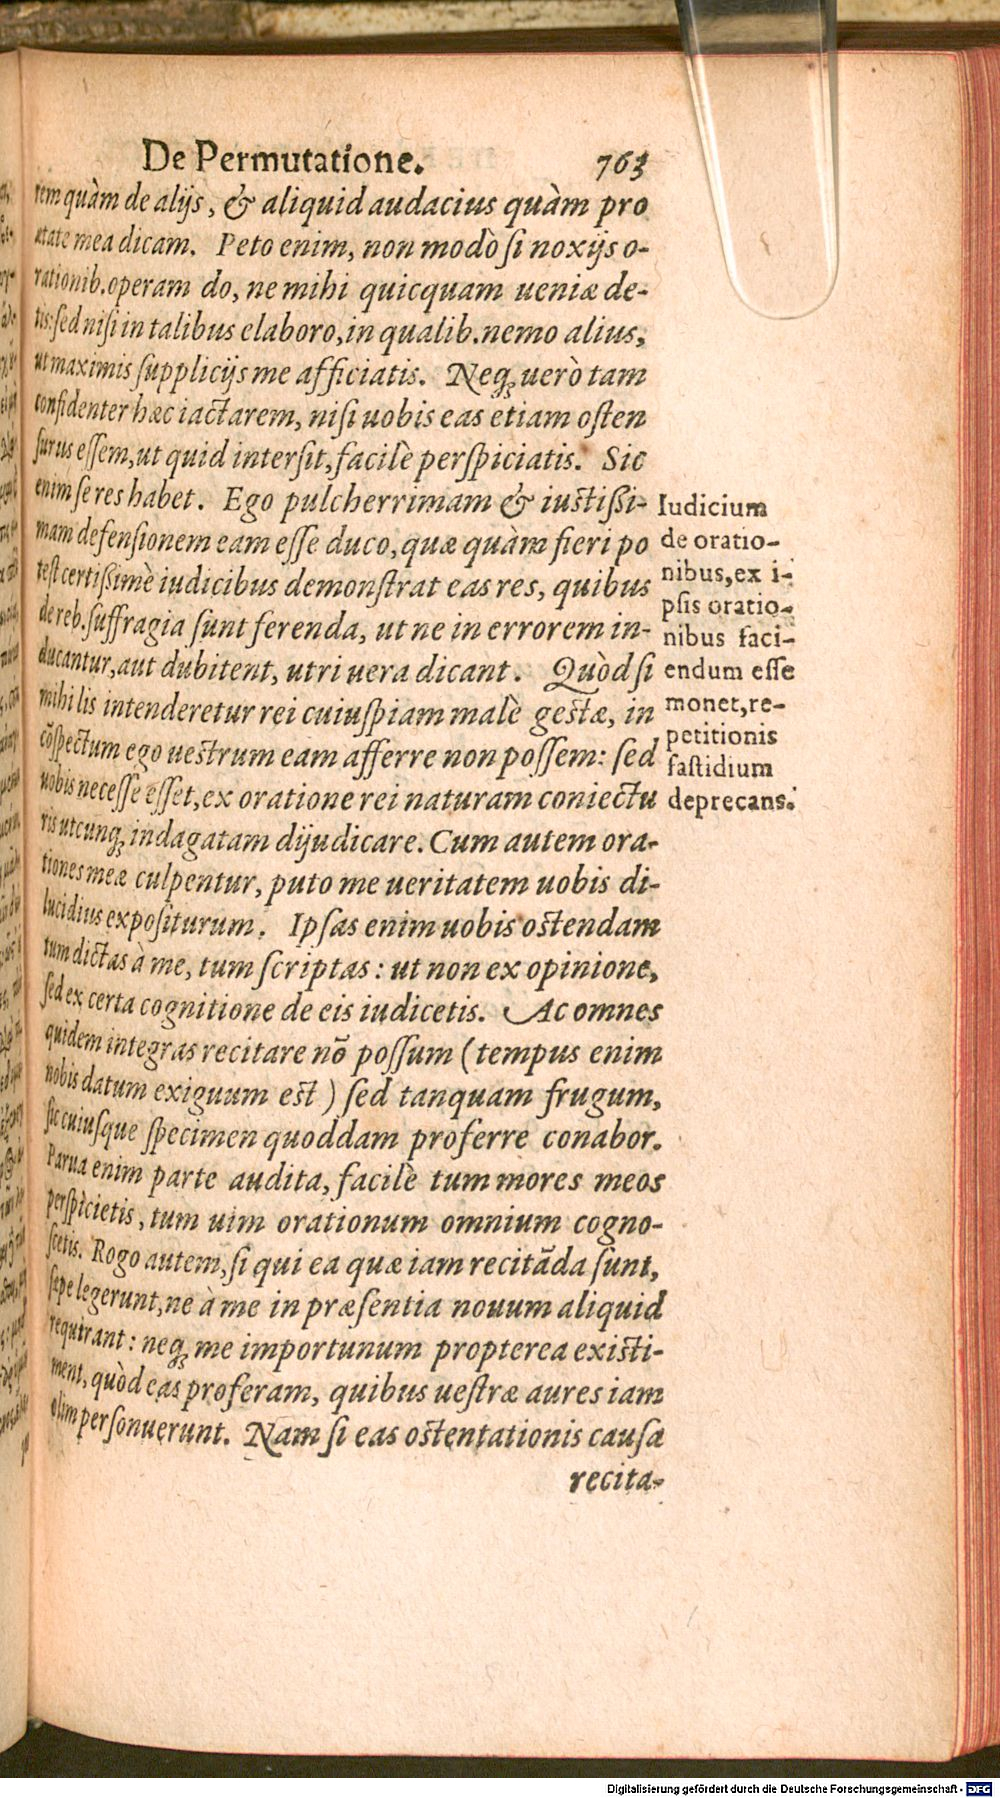 De Permutatione. 763
rem quàm de alijs, & aliquid audacius quàm pro
ætate mea dicam. Peto enim, non modò si noxijs o-
rationib. operam do, ne mihi quicquam ueniæ de-
tis: sed nisi in talibus elaboro, in qualib. nemo alius,
ut maximis supplicijs me afficiatis. Neq; uerò tam
confidenter hæc iactarem, nisi uobis eas etiam osten
surus essem, ut quid intersit, facilè perspiciatis. Sic
enim se res habet. Ego pulcherrimam & iustißi-
mam defensionem eam esse duco, quæ quàm fieri po
test certißimè iudicibus demonstrat eas res, quibus
de reb. suffragia sunt ferenda, ut ne in errorem in-
ducantur, aut dubitent, utri uera dicant. Quòd si
mihi lis intenderetur rei cuiuspiam malè gestæ, in
cõspectum ego uestrum eam afferre non possem: sed
uobis necesse esset, ex oratione rei naturam coniectu
ris utcunq; indagatam dijudicare. Cum autem ora-
tiones meæ culpentur, puto me ueritatem uobis di-
lucidius expositurum. Ipsas enim uobis ostendam
tum dictas à me, tum scriptas: ut non ex opinione,
sed ex certa cognitione de eis iudicetis. Ac omnes
quidem integras recitare nõ possum (tempus enim
nobis datum exiguum est) sed tanquam frugum,
sic cuiusque specimen quoddam proferre conabor.
Parua enim parte audita, facilè tum mores meos
perspicietis, tum uim orationum omnium cogno-
scetis. Rogo autem, si qui ea quæ iam recitãda sunt,
sæpe legerunt, ne à me in præsentia nouum aliquid
requirant: neq; me importunum propterea existi-
ment, quòd eas proferam, quibus uestræ aures iam
olim personuerunt. Nam si eas ostentationis causa
recita-
Iudicium
de oratio-
nibus, ex i-
psis oratio-
nibus faci-
endum esse
monet, re-
petitionis
fastidium
deprecans.
Digitalisierung gefördert durch die Deutsche Forschungsgemeinschaft - DFG